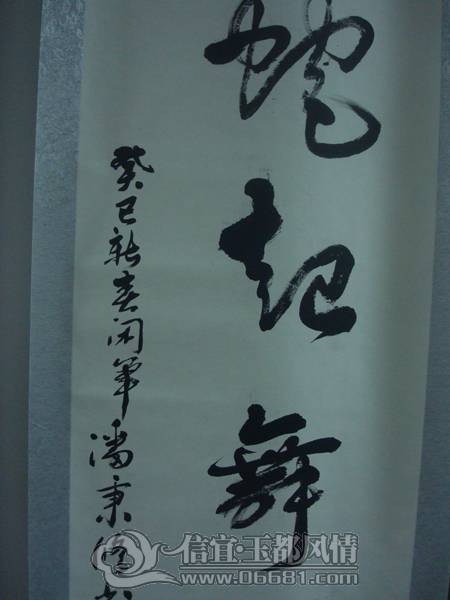 蛇起舞
癸巳新春闲笔潘秉
信宜·玉都风情
www.06681.com